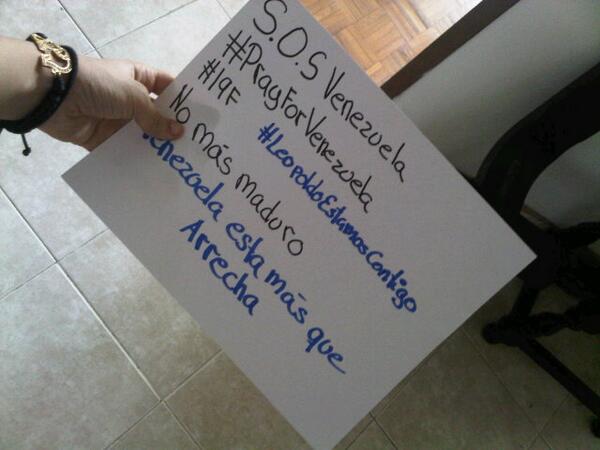 S.O.S Venezuela
#PrayForVenezuela
#19F
#LeopoldoEstamosContigo
No más maduro
Venezuela esta más que
Arrecha